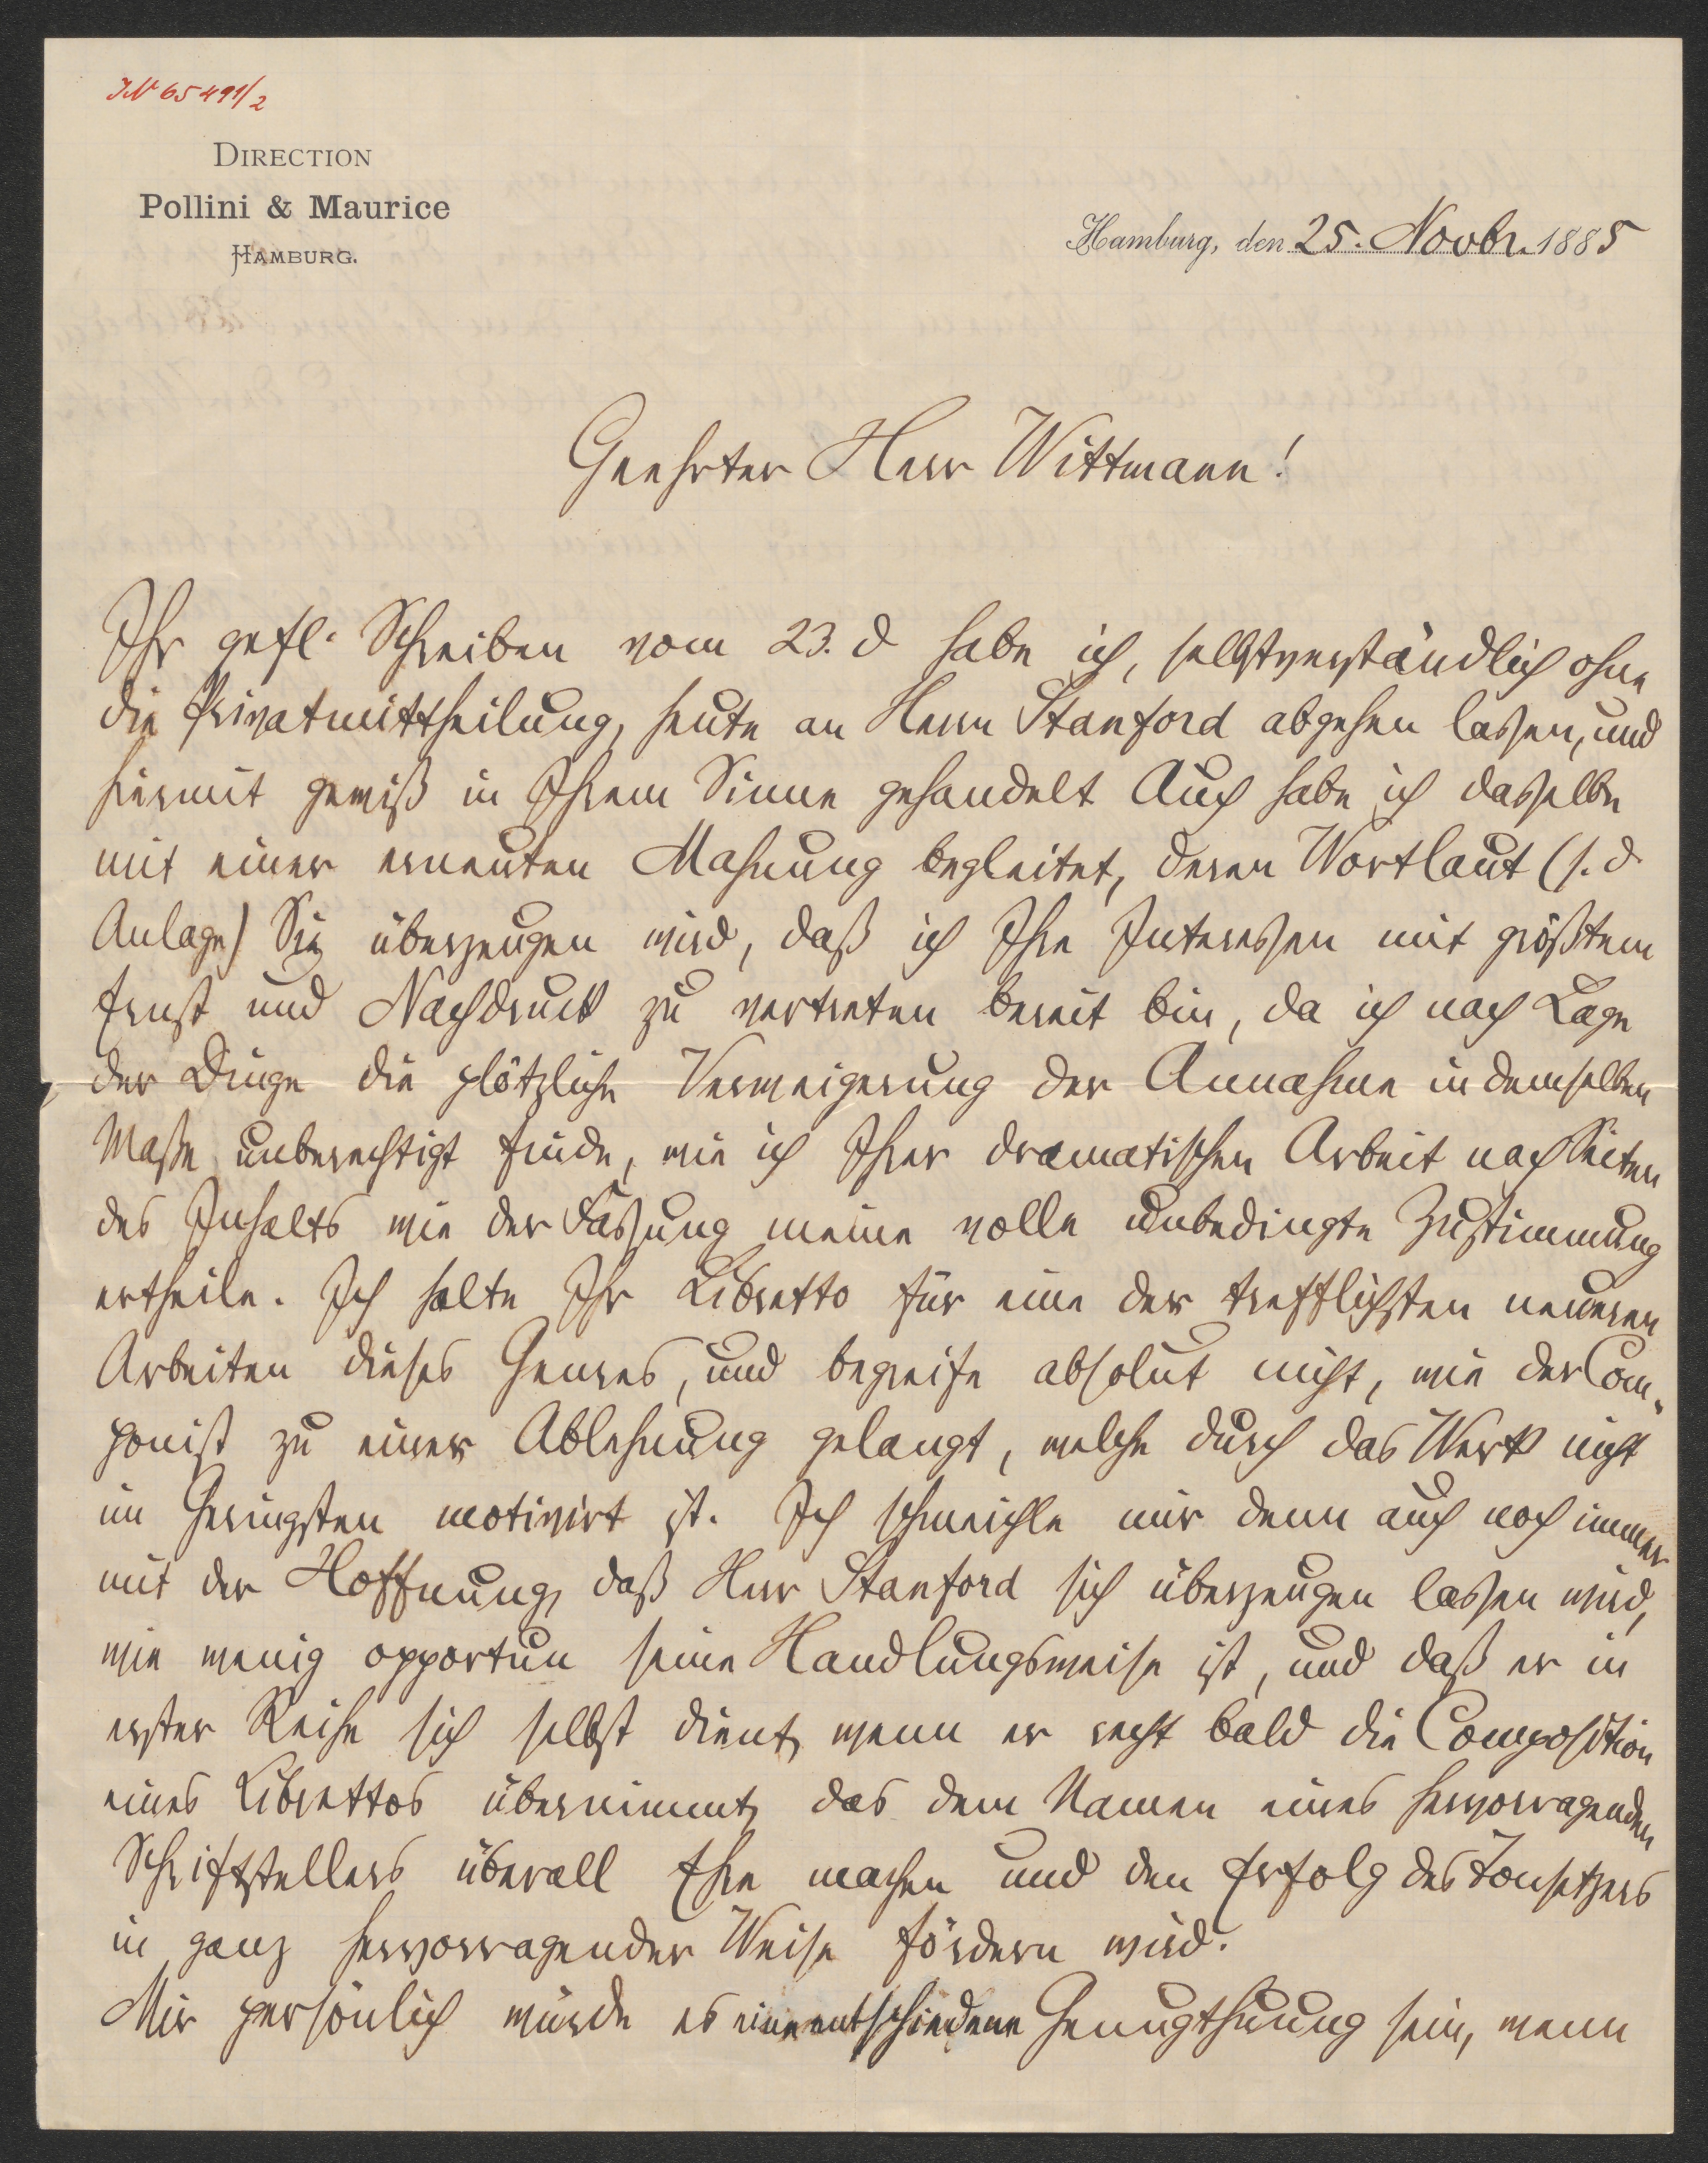 IN 65491/2
DIRECTION
Pollini & Maurice
HAMBURG.
Hamburg, den 25. Novbr. 1885
Geehrter Herr Wittmann!
Ihr gefl. Schreiben vom 23. d habe ich, selbstverständlich ohne
die Privatmittheilung, heute an Herrn Stanford abgehen lassen, und
hiermit gewiß in Ihrem Sinne gehandelt Auch habe ich dasselbe
mit einer erneuten Mahnung begleitet, deren Wortlaut (s. d.
Anlage) Sie überzeugen wird, daß ich Ihre Interessen mit größtem
Ernst und Nachdruck zu vertreten bereit bin, da ich nach Lage
der Dinge die plötzliche Verweigerung der Annahme in demselben
Maße unberechtigt finde, wie ich Ihrer dramatischen Arbeit nach Seiten
des Inhalts wie der Fassung meine volle unbedingte Zustimmung
ertheile. Ich halte Ihr Libretto für eine der trefflichsten neueren
Arbeiten dieses Genres, und begreife absolut nicht, wie der Com-
ponist zu einer Ablehnung gelangt, welche durch das Werk nicht
im Geringsten motivirt ist. Ich schmeichle mir denn auch noch immer
mit der Hoffnung, daß Herr Stanford sich überzeugen lassen wird,
wie wenig opportun seine Handlungsweise ist, und daß er in
erster Reihe sich selbst dient, wenn er recht bald die Composition
eines Librettos übernimmt, das dem Namen eines hervorragenden
Schriftstellers überall Ehre machen und den Erfolg des Tonsetzers
in ganz hervorragender Weise fördern wird.
Mir persönlich würde es eine entschiedene Genugthuung sein, wenn